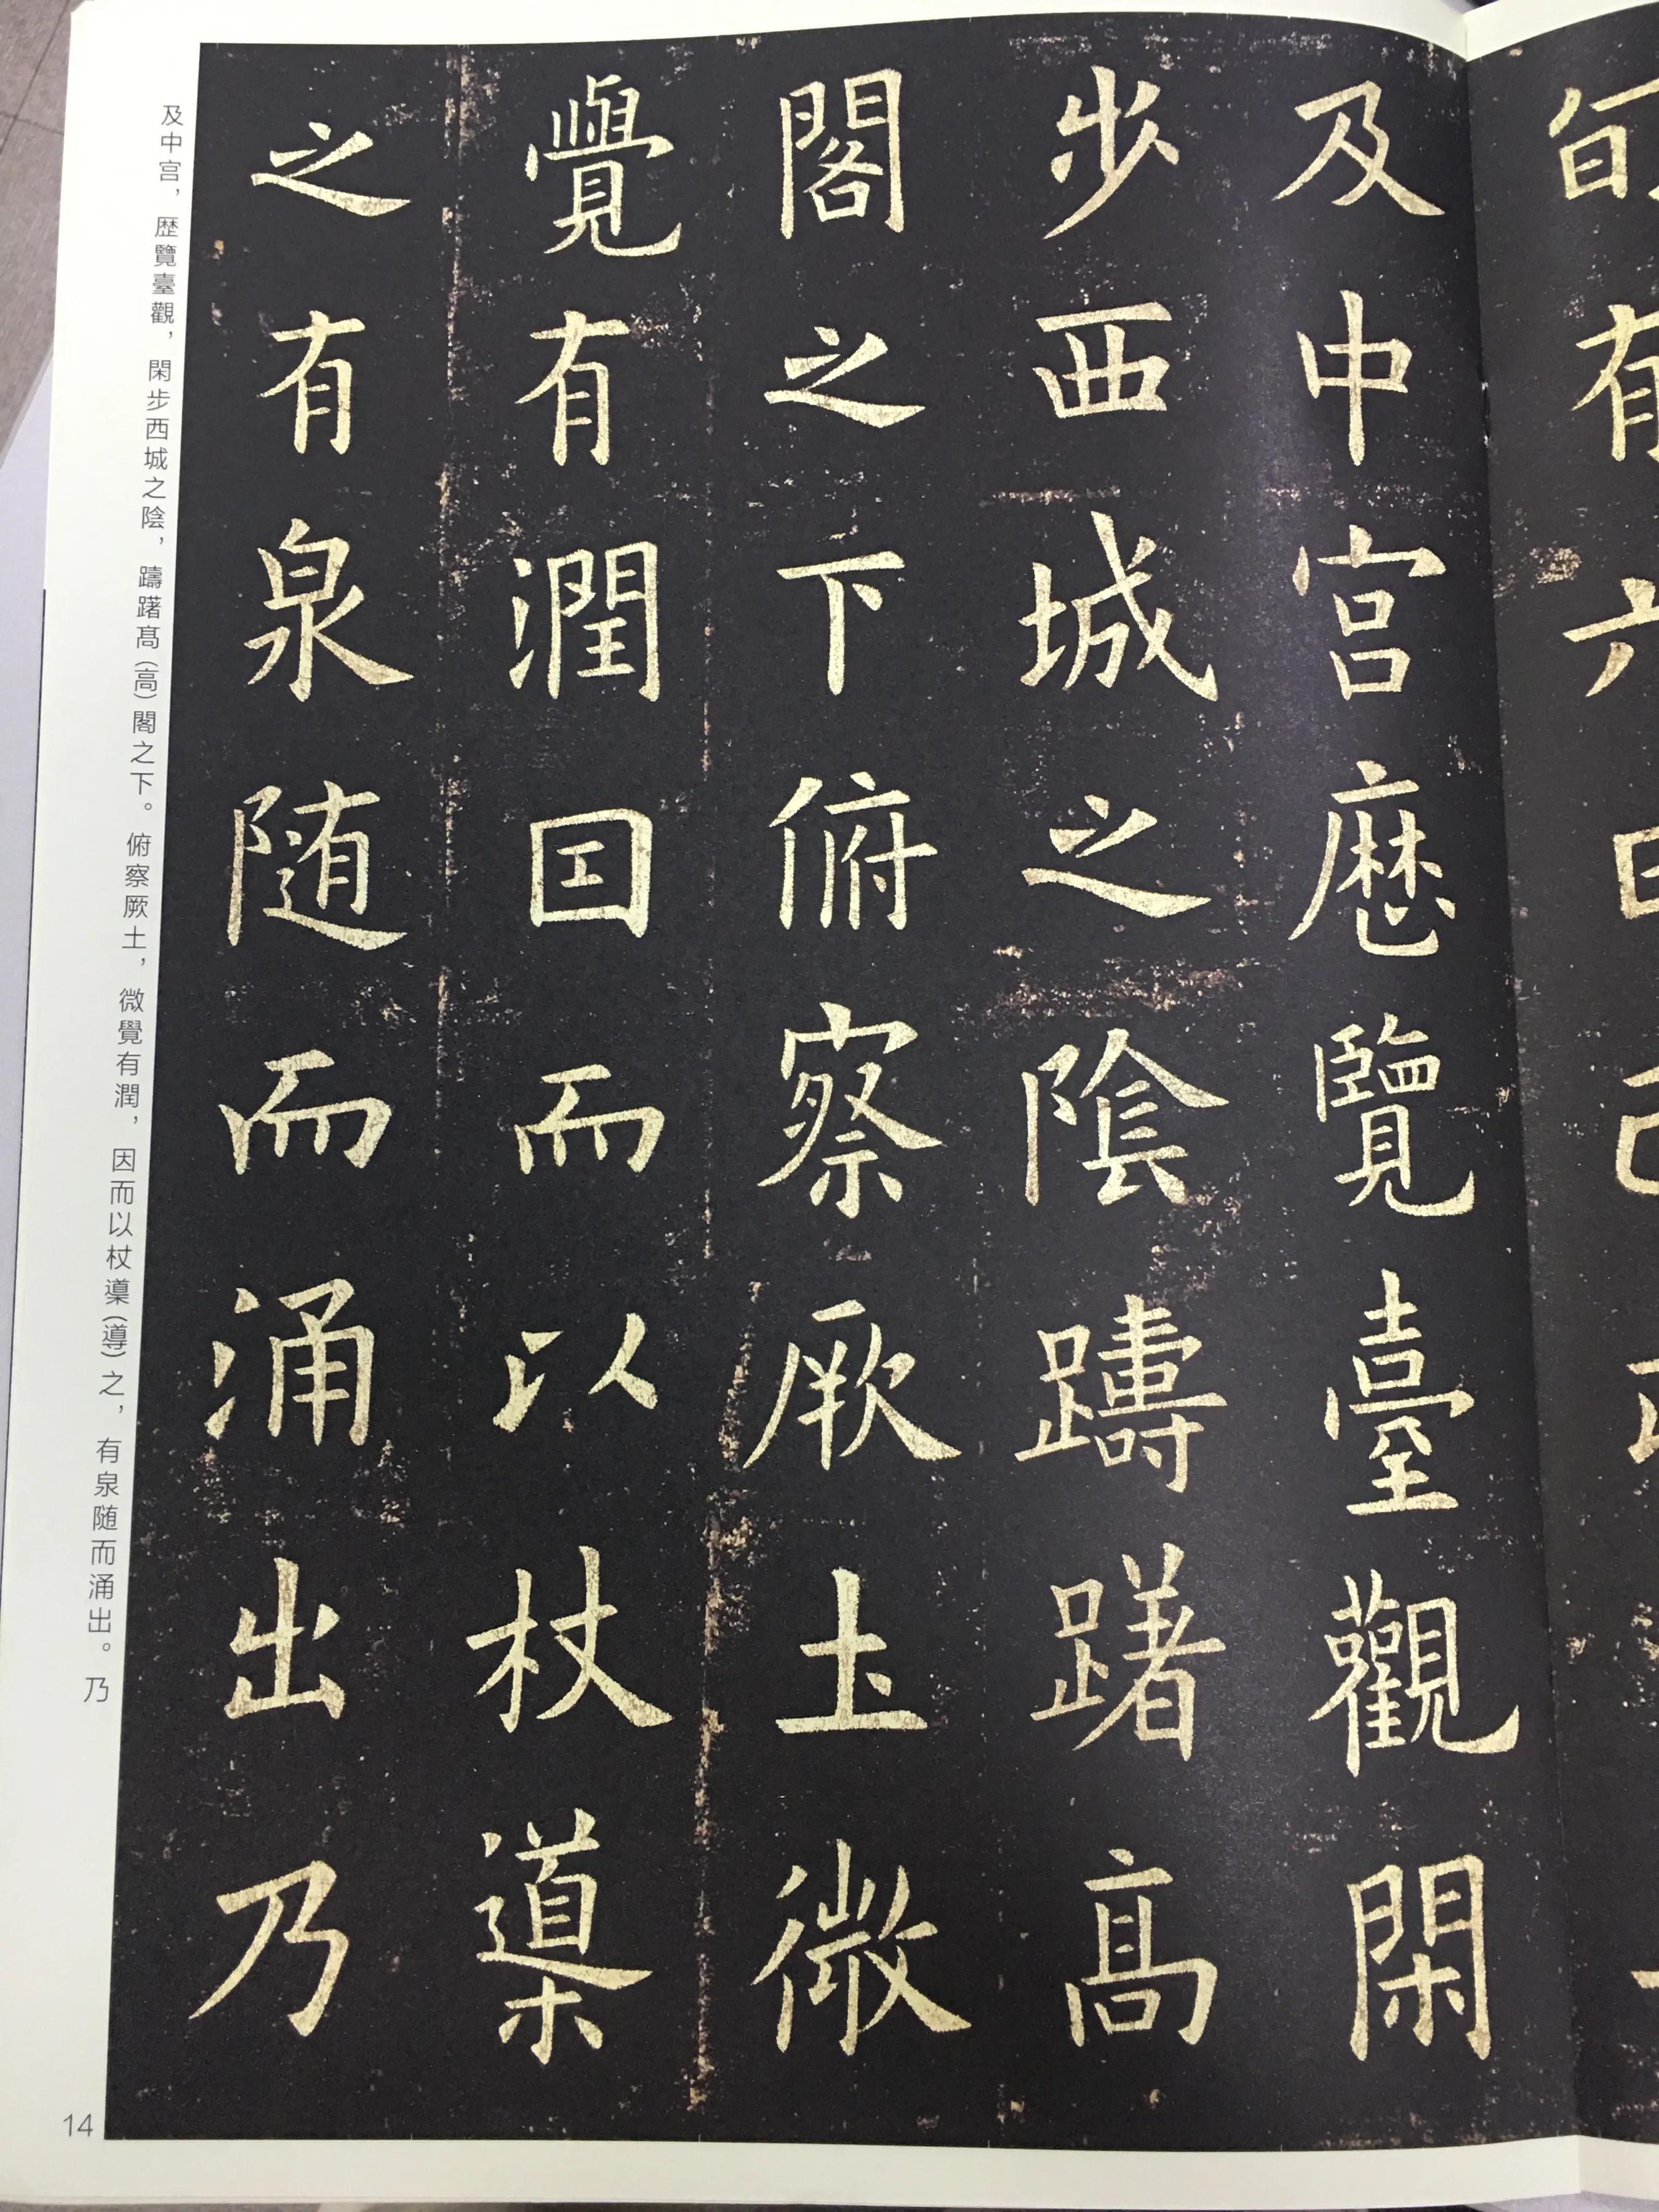 及中宮歷覽臺觀閑
步西城之陰躊躇髙
閣之下俯察厥土微
覺有潤因而以杖導
之有泉随而涌出乃
及中宫，歴覽臺觀，閑步西城之陰，躊躇髙（高）閣之下。俯察厥土，微覺有潤，因而以杖𨗓（導）之，有泉随而涌出。乃
14